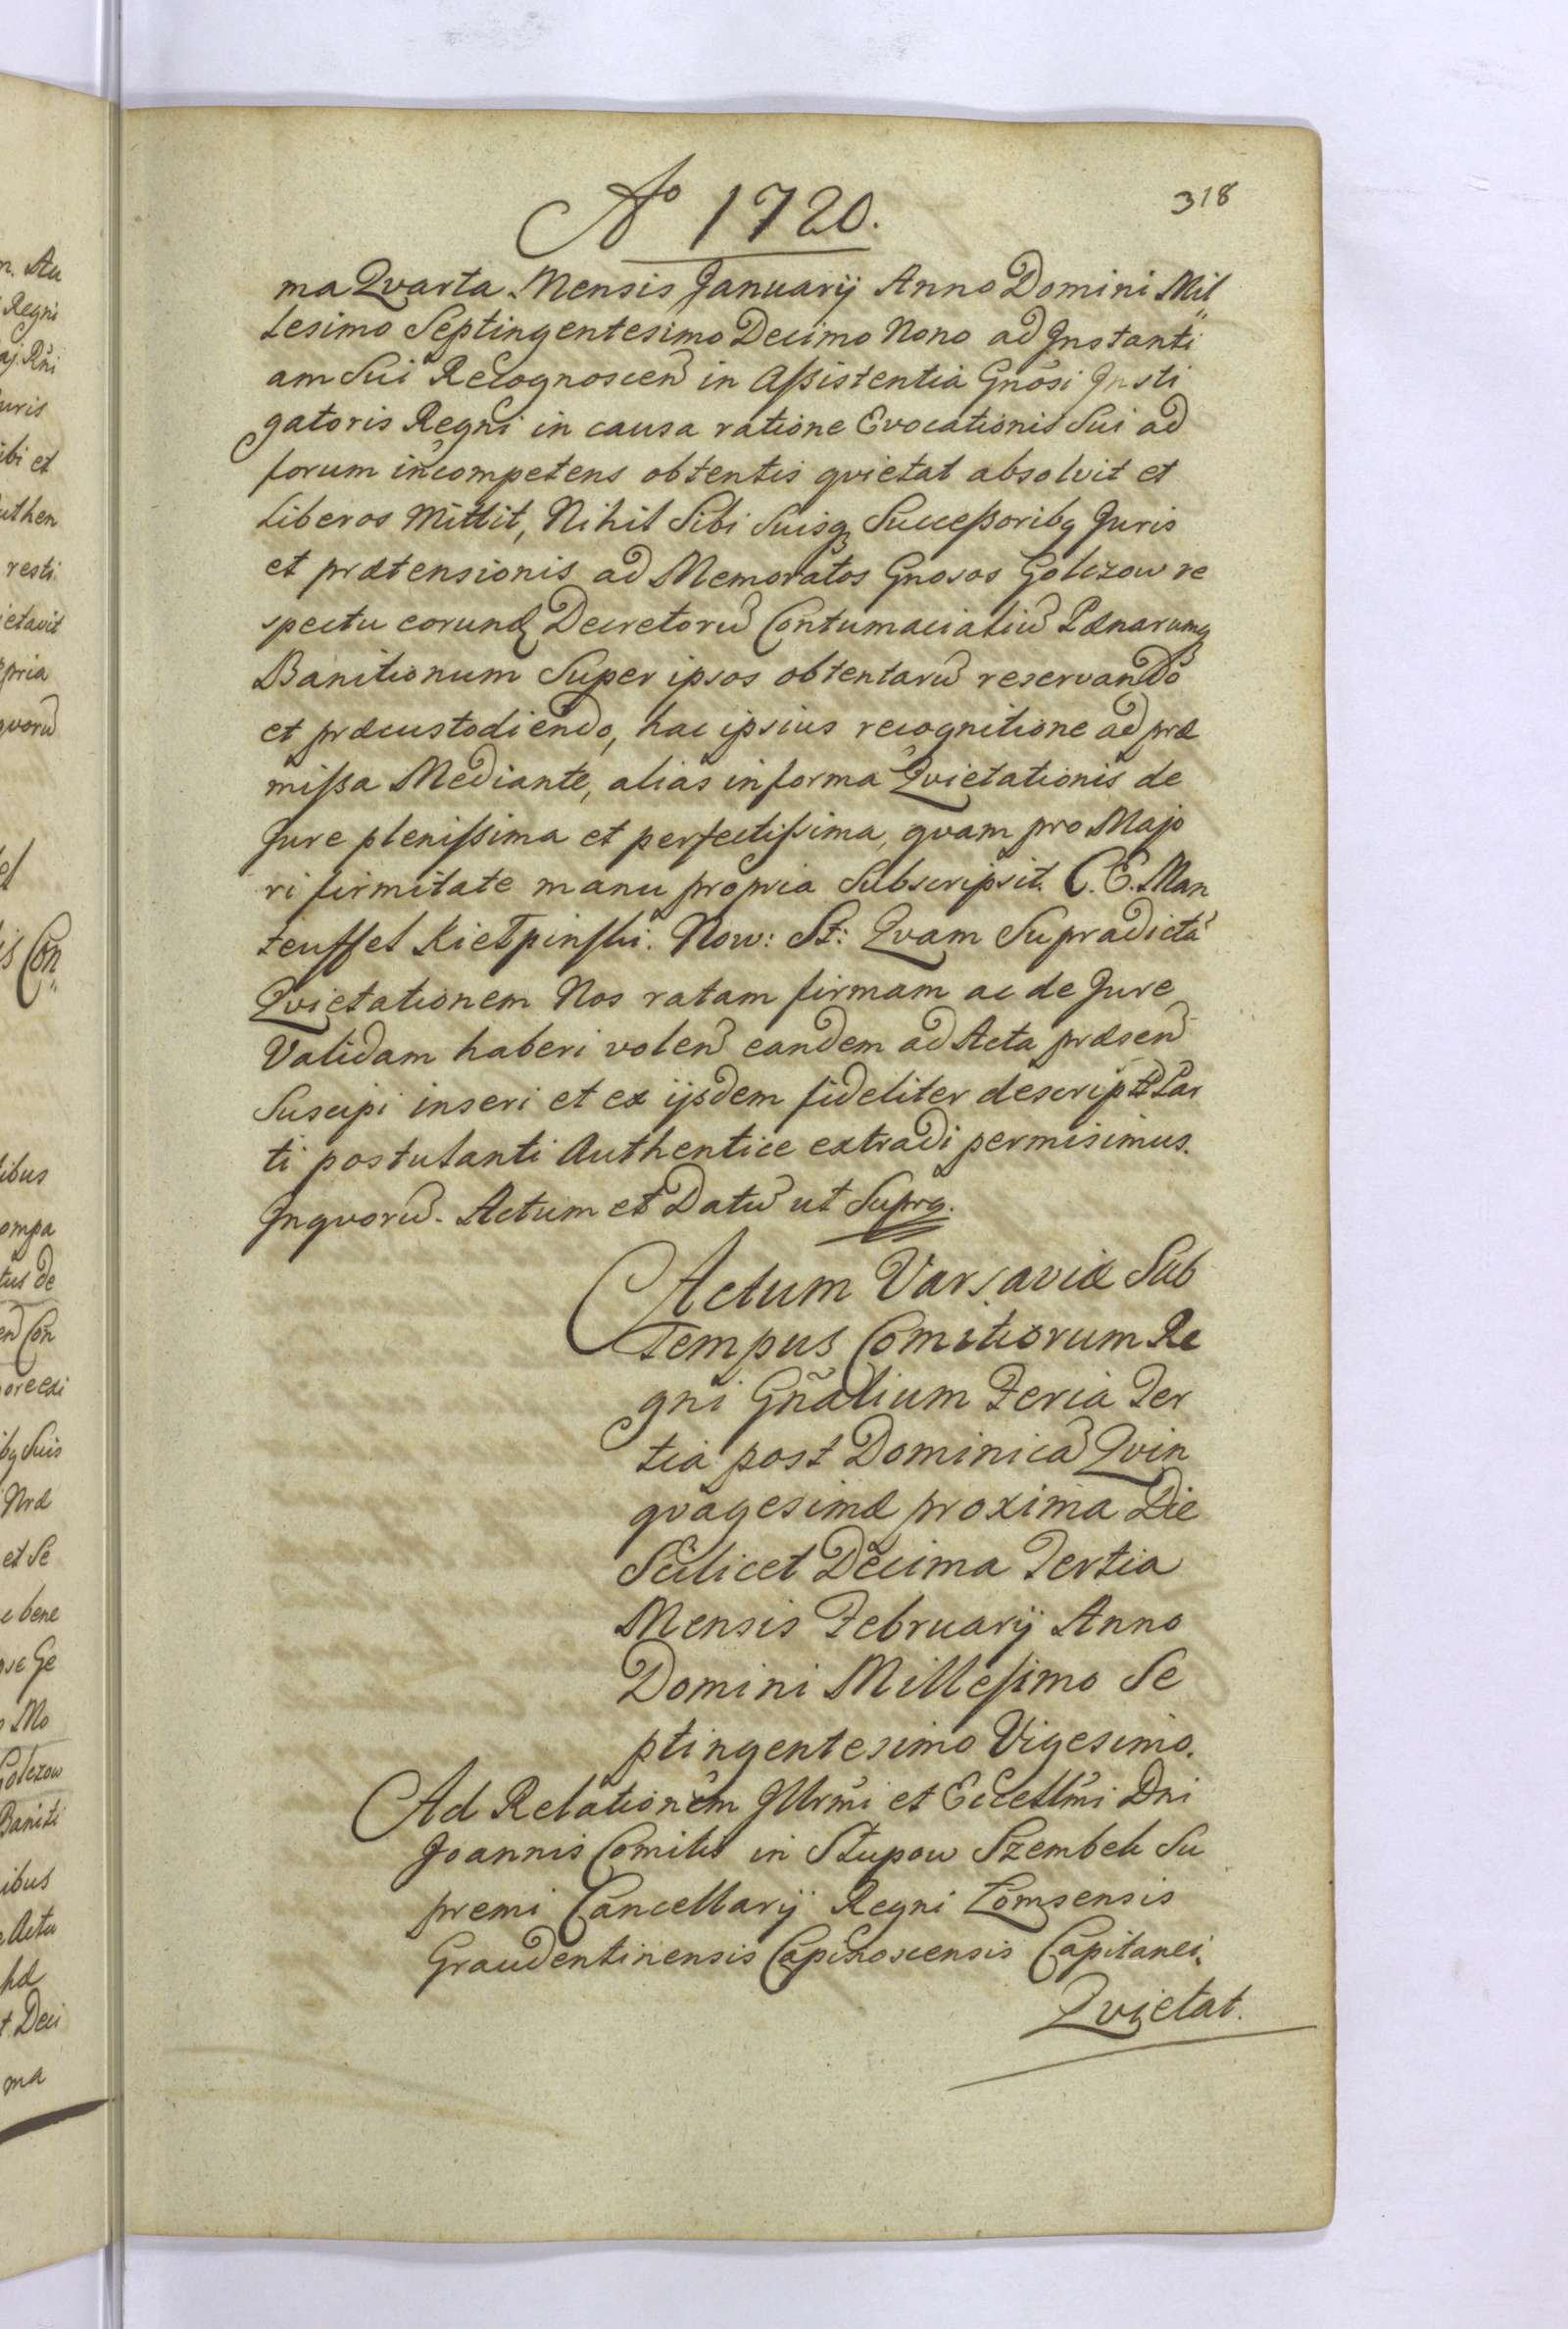 Aº 1720.
318
ma Qvarta Mensis Januarij Anno Domini Mil„
lesimo Septingentesimo Decimo Nono ad Instanti
am Sui Recognoscen̄ in Aſsistentia Gn̄osi Insti
gatoris Regni in causa ratione Evocationis Sui ad
forum incompetens obtentis qvietat absolvit et
Liberos Mittit, Nihil Sibi Suisq Succeſsoribq Juris
et prætensionis ad Memoratos Gnosos Golczow re
spectu eorundē Decretorū Contumacialiū Pænarumq
Banitionum Super ipsos obtentarū reservando
et præcustodiendo, hac ipsius recognitione ad præ
miſsa Mediante, alias in forma Qvietationis de
Jure pleniſsima et perfectiſsima, qvam pro Majo
ri firmitate manu propria Subscripsit. C. E. Man
teuffel Kiełpinſki. Now: St: Qvam Supradictā
Qvietationem Nos ratam firmam ac de Jure
Validam haberi volen̄ eandem ad Acta præsen̄
Suscipi inseri et ex ijsdem fideliter descript Par
ti postulanti Authentice extradi permisimus.
Inqvorū. Actum et Datū ut Supra.
Actum Varsaviæ Sub
Tempus Comitiorum Re
gni Gñalium Feria Ter
tia post Dominicā Qvin
qvagesimæ proxima Die
Scilicet Decima Tertia
Mensis Februarij Anno
Domini Milleſimo Se
ptingentesimo Vigesimo.
Ad Relationem Illrmi et Eccellmi Dni
Joannis Comitis in Słupow Szembek Su
premi Cancellarij Regni Łomzensis
Graudentinensis Capinoscensis Capitanei.
Qvietat.
n. Au
Regni
aj. Rñi
uris
ibi et
uthen
resti
ietavit
pria
qvorū
is Con„
libus
ompa
tus de
en̄ Con
ibq Suis
Nræ
et Se
e bene
Mo
Golczow
Baniti
ibus
Actu
t Deci
ma